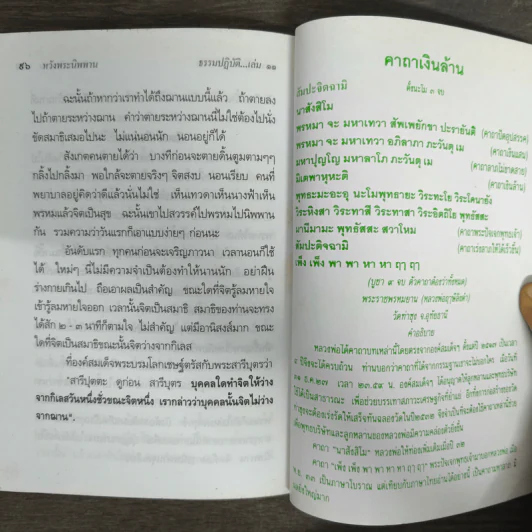 ๙๖ หวังพระนิพพาน
ธรรมปฏิบัติ...เล่ม ๑๑
ฉะนั้นถ้าหากว่าเราทำได้ถึงฌานแบบนี้แล้ว ถ้าตายลง
ไปถ้าตายระหว่างฌาน คำว่าตายระหว่างฌานนี่ไม่ใช่ต้องไปนั่ง
ขัดสมาธิเสมอไปนะ ไม่แน่นอนนัก นอนอยู่ก็ได้
สังเกตคนตายได้ว่า บางทีก่อนจะตายดิ้นตูมตามๆๆ
กลิ้งไปกลิ้งมา พอใกล้จะตายจริงๆ จิตสงบ นอนเรียบ คนที่
พยาบาลอยู่คิดว่าดีแล้วนั่นไม่ใช่ เห็นเทวดาเห็นนางฟ้าเห็น
พรหมแล้วจิตเป็นสุข ฉะนั้นเขาไปสวรรค์ไปพรหมไปนิพพาน
กัน รวมความว่าวันแรกก็เอาแบบง่ายๆ ก่อนนะ
อันดับแรก ทุกคนก่อนจะเจริญภาวนา เวลานอนก็ใช้
ได้ ใหม่ๆ นี่ไม่มีความจำเป็นต้องทำให้นานนัก อย่าฝืน
ร่างกายเกินไป ถือเอาผลเป็นสำคัญ ขณะใดที่จิตรู้ลมหายใจ
เข้ารู้ลมหายใจออก เวลานั้นจิตเป็นสมาธิ สมาธิของท่านจะทรง
ได้สัก ๒ - ๓ นาทีก็ตามใจ ไม่สำคัญ แต่มีอานิสงส์มาก ขณะ
ใดที่จิตเป็นสมาธิขณะนั้นจิตว่างจากกิเลส
ที่องค์สมเด็จพระบรมโลกเชษฐ์ตรัสกับพระสารีบุตรว่า
"สารีปุตตะ ดูก่อน สารีบุตร บุคคลใดทำจิตให้ว่าง
จากกิเลสวันหนึ่งชั่วขณะจิตหนึ่ง เรากล่าวว่าบุคคลนั้นจิตไม่ว่าง
จากฌาน".
คาถาเงินล้าน
ตั้งนะโม ๓ จบ
สัมปะจิตฉามิ
นาสังสิโม
พรหมา จะ มหาเทวา สัพเพยักขา ปะรายันติ (คาถาปัดอุปสรรค)
พรหมา จะ มหาเทวา อภิลาภา ภะวันตุ เม (คาถาเงินแสน)
มหาปุญโญ มหาลาโภ ภะวันตุ เม (คาถาลาภไม่ขาดสาย)
มิเตพาหุหะติ (คาถาเงินล้าน)
พุทธะมะอะอุ นะโมพุทธายะ วิระทะโย วิระโคนายัง
วิระหิงสา วิระทาสี วิระทาสา วิระอิตถิโย พุทธัสสะ
มานีมามะ พุทธัสสะ สวาโหม (คาถาพระปัจเจกพุทธเจ้า)
สัมปะติจฉามิ (คาถาเร่งลาภให้ได้เร็วขึ้น)
เพ็ง เพ็ง พา พา หา หา ฤา ฤา
(บูชา ๙ จบ ตัวคาถาต้องว่าทั้งหมด)
พระราชพรหมยาน (หลวงพ่อฤาษีลิงดำ)
วัดท่าซุง จ.อุทัยธานี
คำอธิบาย
คาถา "นาสังสิโม" หลวงพ่อให้ท่องเพิ่มเติมเมื่อปี ๓๒
คาถา "เพ็ง เพ็ง พา พา หา หา ฤา ฤา" พระปัจเจกพุทธเจ้ามาบอกหลวงพ่อ เมื่อ